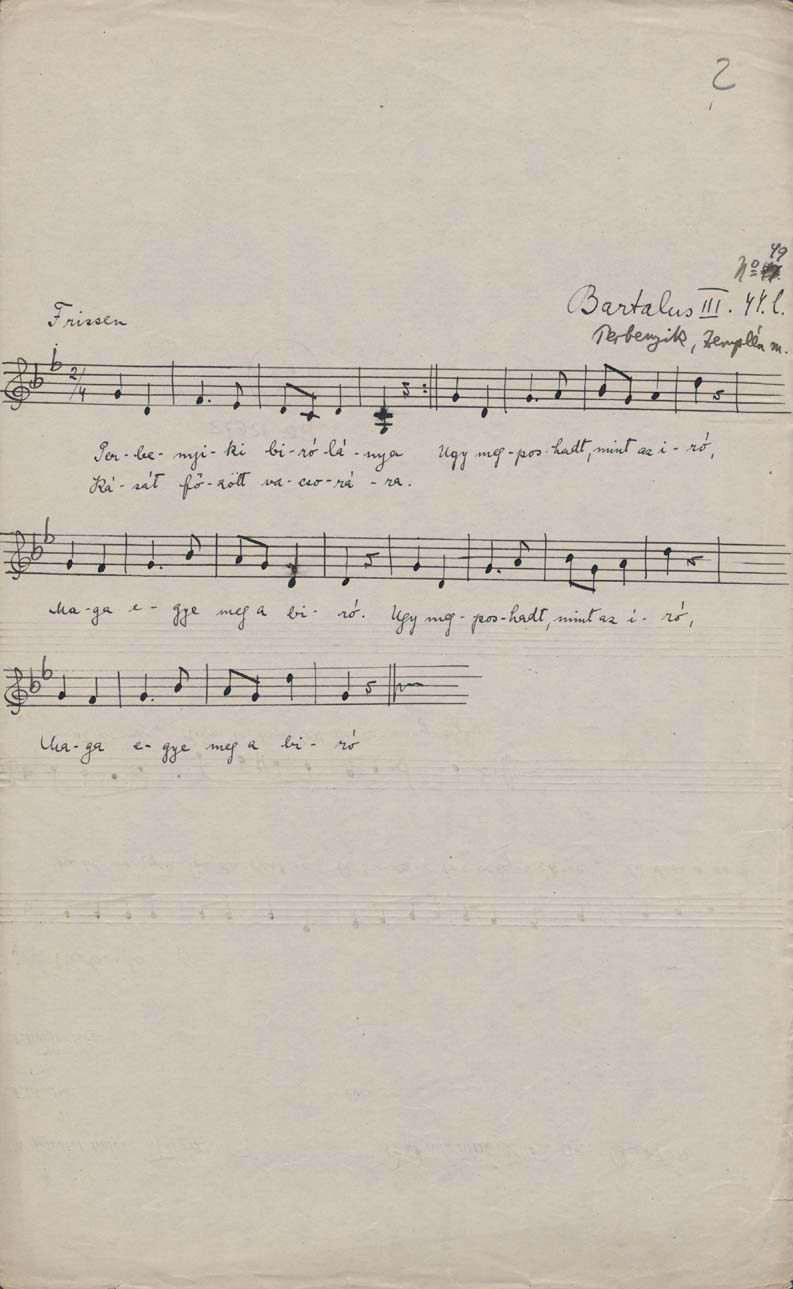 2
49
No
Bartalus III. 44. l.
Perbenyik, Zemplén m.
Frissen
2/4
Per-be-nyi-ki bi-ró-lá-nya Ugy meg-pos-hadt, mint az i-ró,
Ká-sát fő-zött va-cso-rá-ra.
Ma-ga e-gye meg a bi-ró. Ugy meg-pos-hadt, mint az i-ró,
Ma-ga e-gye meg a bi-ró